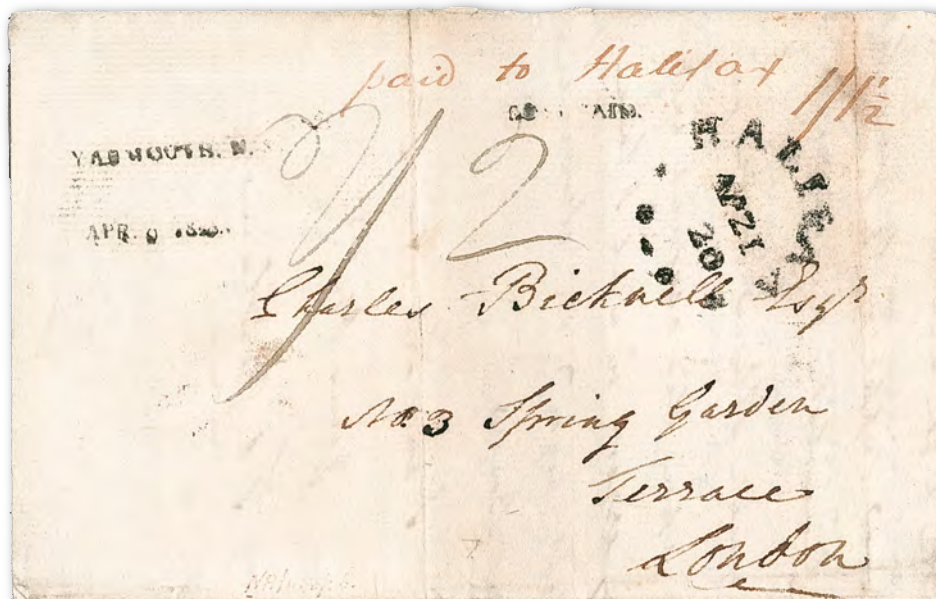 paid to Halifax 1/1½
PAID.
YARMOUTH. N.S
APR. 9 18
2
HALIFAX
20
Charles Bicknell Esqr
No. 3 Spring Garden
Terrace
London